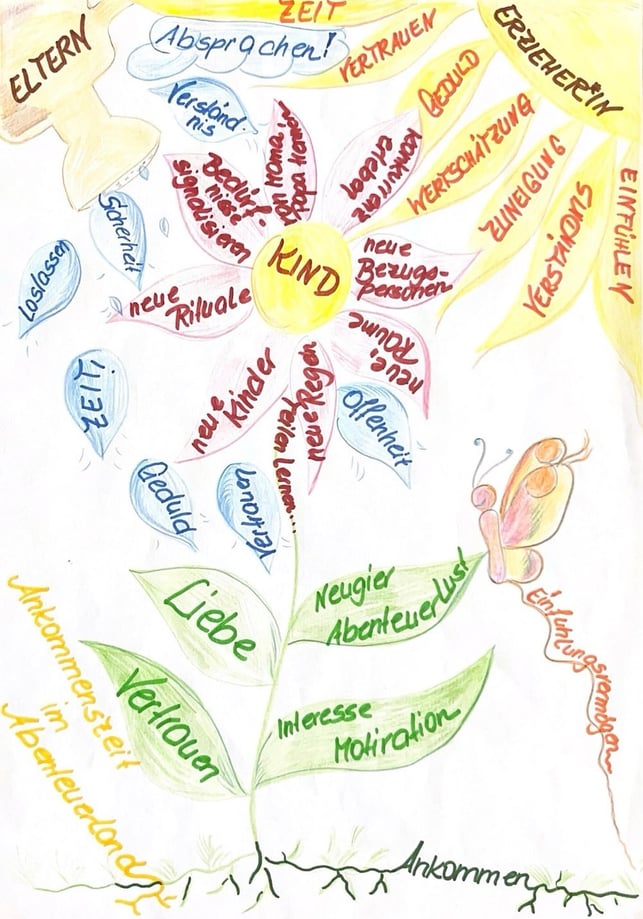 ZEIT
ELTERN
Absprachen!
ERZIEHER*IN
VERTRAUEN
GEDULD
WERTSCHÄTZUNG
ZUNEIGUNG
VERSTÄNDNIS
EINFÜHLEN
Verständ-
nis
Sicherheit
Loslassen
ZEIT!
Geduld
Vertrauen
Offenheit
KIND
Bedürf-
nisse
signalisieren
Konkurrenz
erleben
neue
Bezugs-
personen
neue
Räume
neue Regeln
teilen lernen...
neue
Kinder
neue
Rituale
Liebe
Neugier
Abenteuerlust
Vertrauen
Interesse
Motivation
Einfühlungsvermögen
Ankommenszeit
im
Abenteuerland
Ankommen